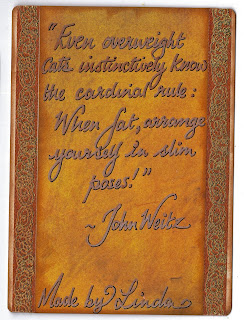 "Even overweight
Cats instinctively know
the cardinal rule:
When fat, arrange
yourself in slim
poses!"
~ John Weitz
Made by Linda